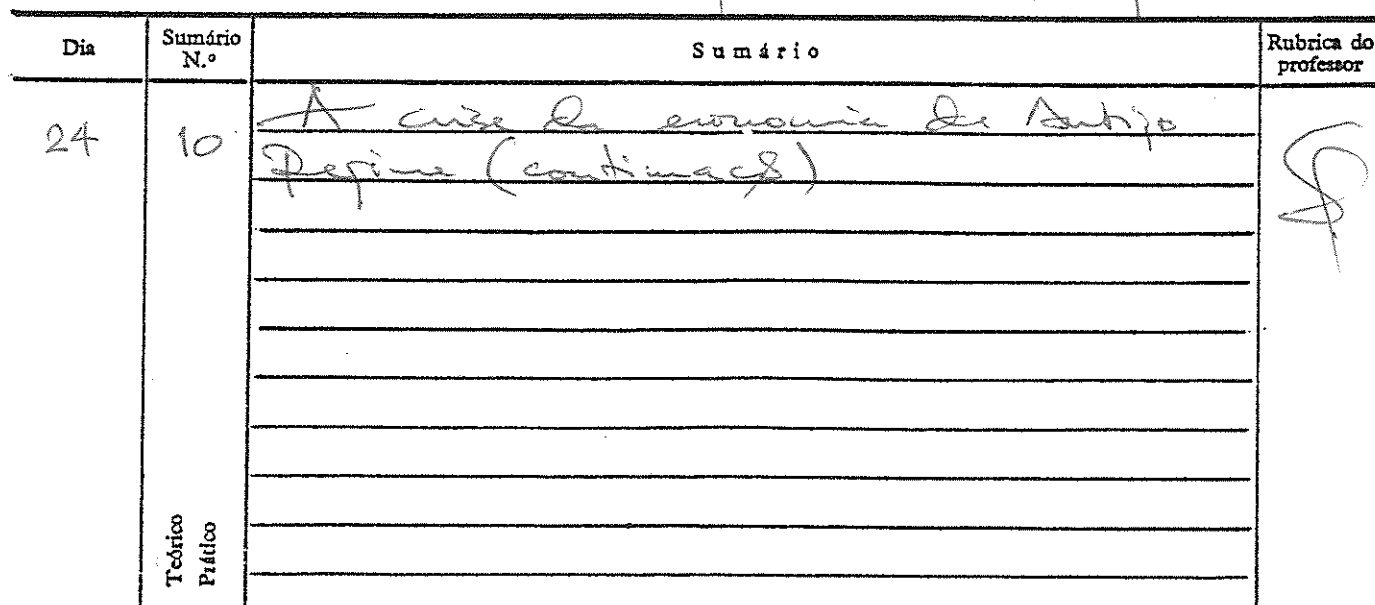 Dia Sumário N.º Sumário Rubrica do professor
24 10 A crise da economia de Antigo
Regime (continuação)
Teórico
Prático